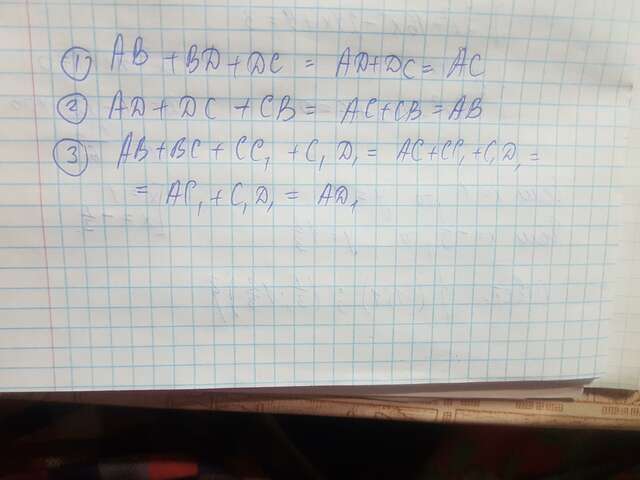 ① AB + BD + DC = AD + DC = AC
② AD + DC + CB = AC + CB = AB
③ AB + BC + CC₁ + C₁D₁ = AC + CC₁ + C₁D₁ =
= AC₁ + C₁D₁ = AD₁